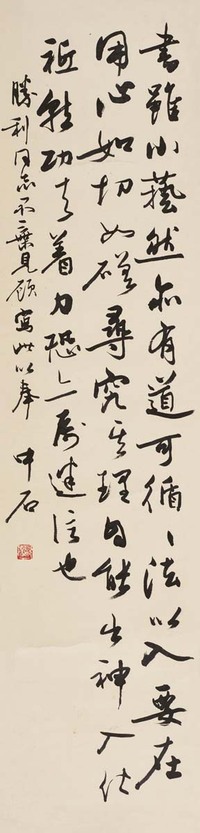 書雖小藝然亦有道可循々法以入要在
用心如切如磋尋究其理自能出神入化
功夫着力恐亦屬迷信也
勝利同志不棄見顧寫此以奉
中石